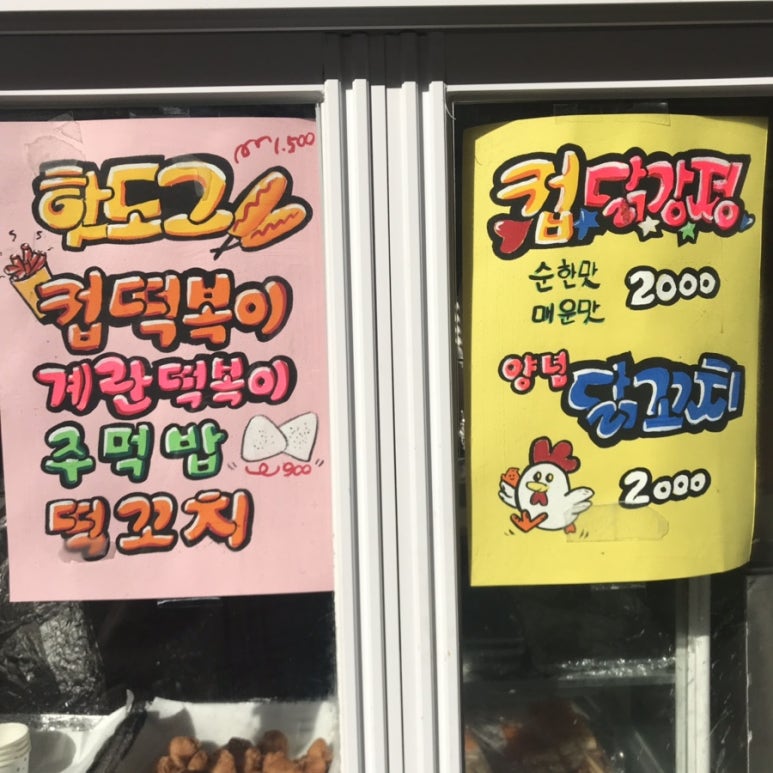 1.500
핫도그
컵떡볶이
계란떡볶이
주먹밥
900
떡꼬치
컵닭강정
순한맛
매운맛
2000
양념
닭꼬치
2000